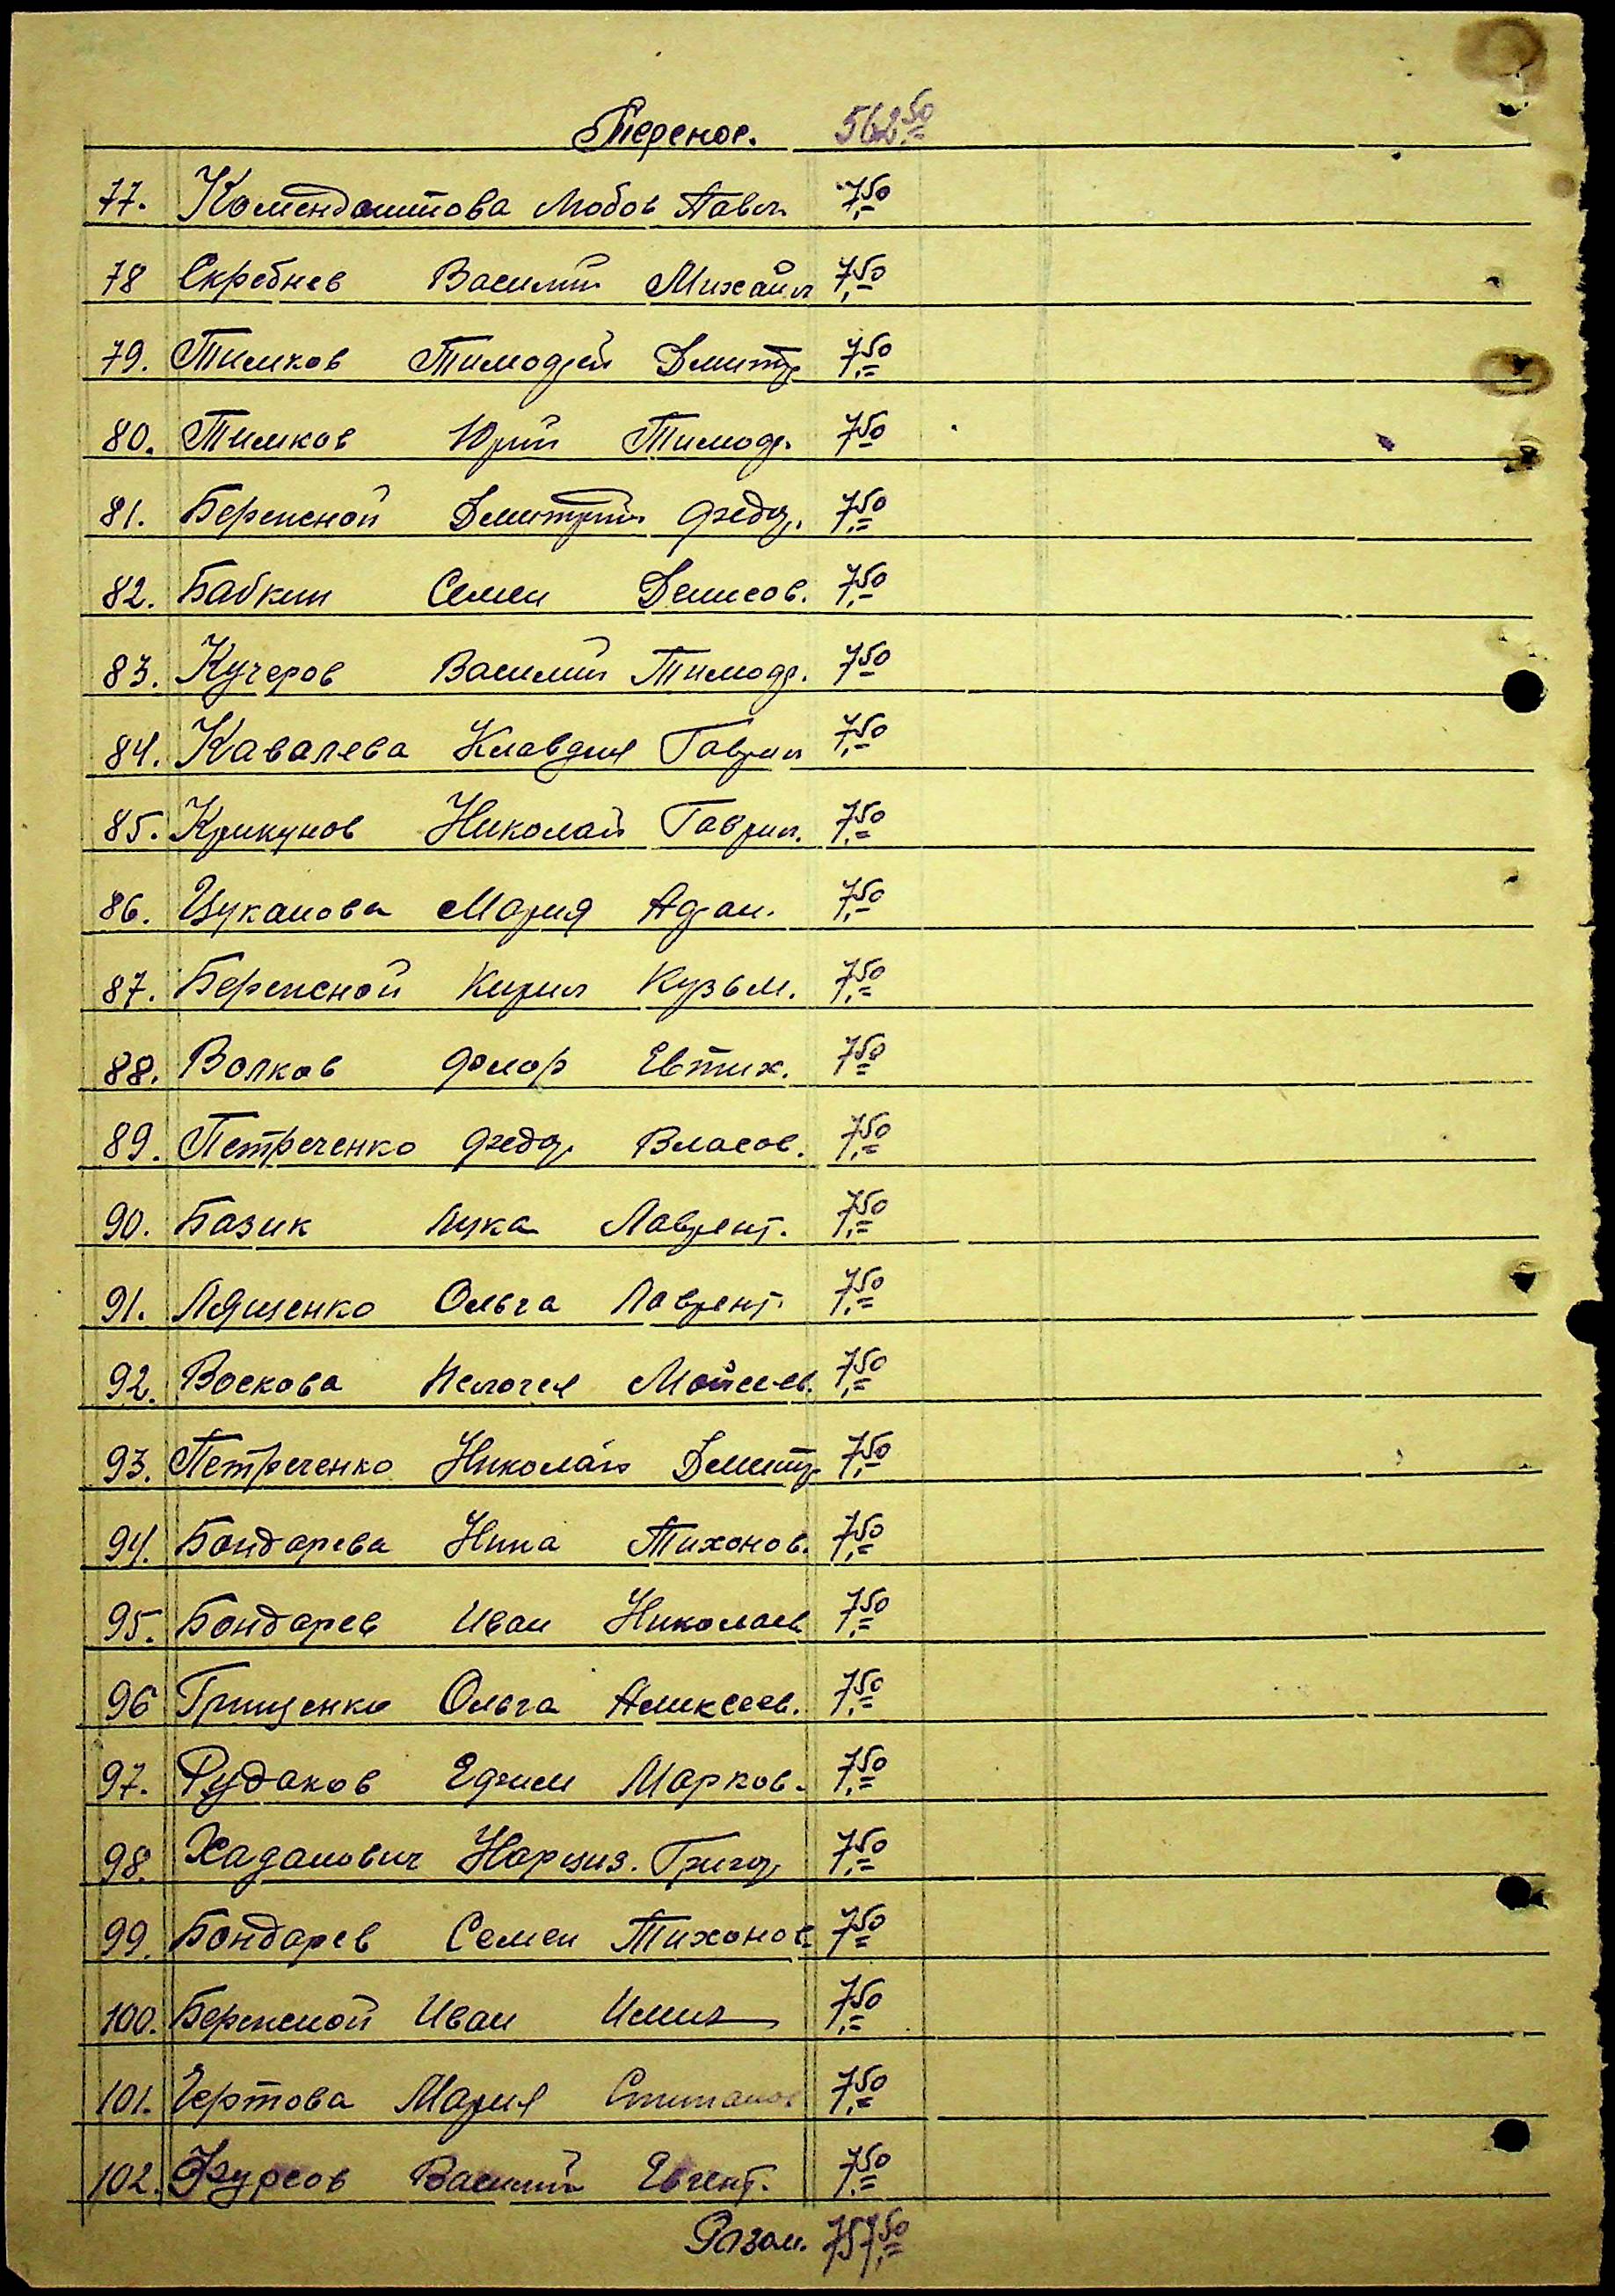 Перенос. 562,50
77. Комендантова Любов Павл. 7,50
78 Скребнев Василий Михайл 7,50
79. Тимков Тимофей Дмитр 7,50
80. Тимков Юрий Тимоф. 7,50
81. Бережной Дмитрий Федор. 7,50
82. Бабкин Семен Денисов. 7,50
83. Кучеров Василий Тимоф. 7,50
84. Кавалева Клавдия Гаврил 7,50
85. Крикунов Николай Гаврил. 7,50
86. Цуканова Мария Афан. 7,50
87. Бережной Кирил Кузьм. 7,50
88. Волков Флор Евтих. 7,50
89. Петреченко Федор Власов. 7,50
90. Базик Лука Лаврент. 7,50
91. Лященко Ольга Лаврент. 7,50
92. Воскова Пелогея Мойсеев. 7,50
93. Петреченко Николай Дмитр 7,50
94. Бондарева Нина Тихонов. 7,50
95. Бондарев Иван Николаев 7,50
96 Грищенко Ольга Алексеев. 7,50
97. Рудаков Ефим Марков. 7,50
98. Хаданович Нарциз. Григор 7,50
99. Бондарев Семен Тихонов 7,50
100. Бережной Иван Ильич 7,50
101. Чертова Мария Степанов 7,50
102. Фурсов Василий Евгент. 7,50
Разом. 757,50